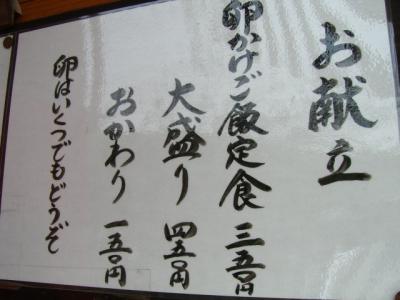 お献立
卵かけご飯定食 三五〇円
大盛り 四五〇円
おかわり 一五〇円
卵はいくつでもどうぞ